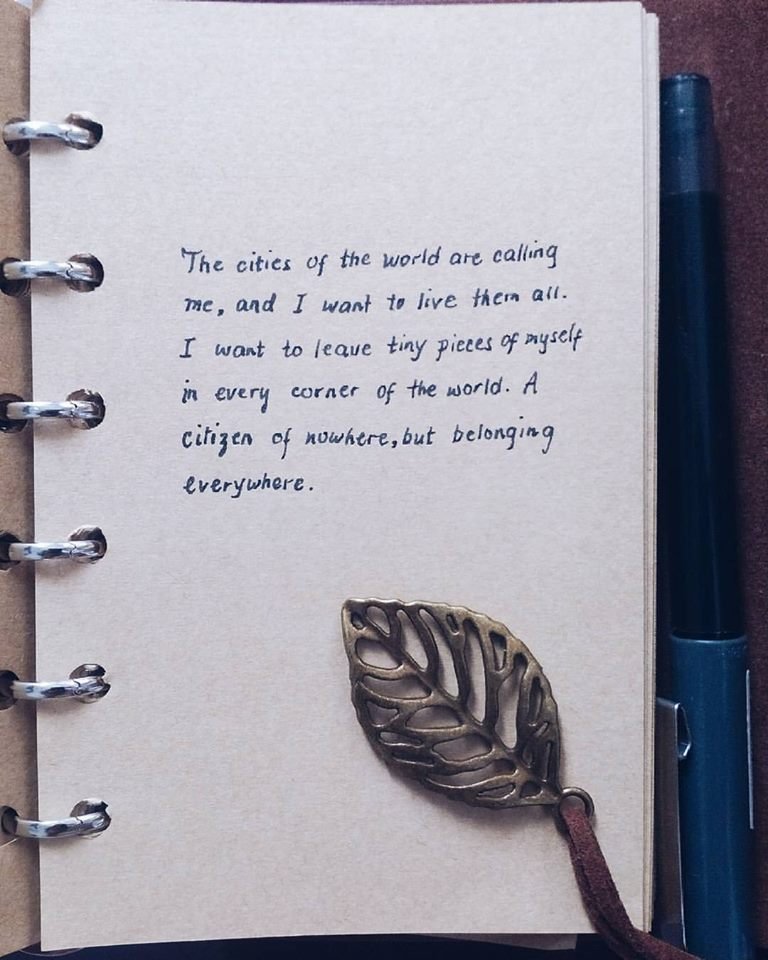 The cities of the world are calling
me, and I want to live them all.
I want to leave tiny pieces of myself
in every corner of the world. A
citizen of nowhere, but belonging
everywhere.